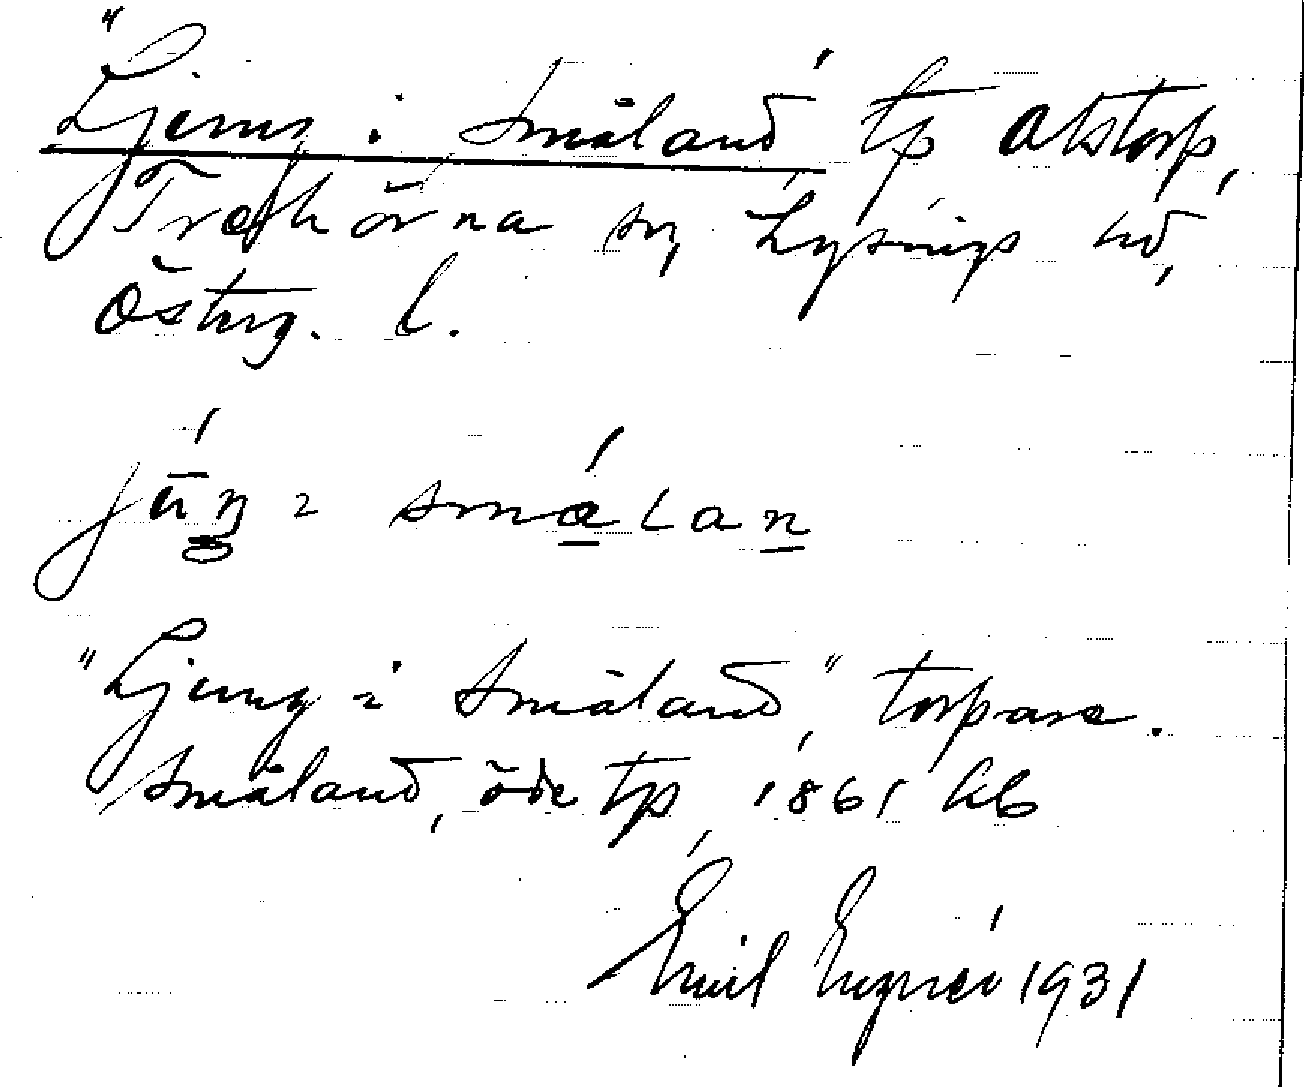 "Ljung i Småland tp Alstorp,
Trehörna sn, Lysings hd,
Österg. l.
júŋ i smålan
"Ljung i Småland", torpare.
Småland, öde tp, 1861 hb
Emil 1931